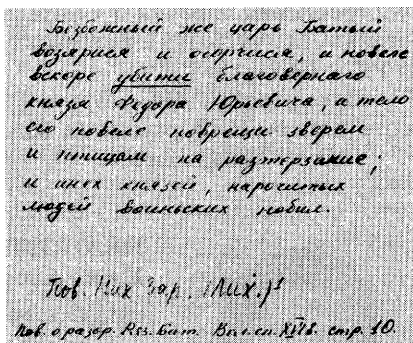 Безбожный же царь Батый
возярися и огорчися, и повеле
вскоре убити благовернаго
князя Федора Юрьевича, а тело
его повеле поврещи зверем
и птицам на разтерзание;
и инех князей, нарочитых
людей воиньских побил.
Пов. Ник Зар. (Лих.)¹
Пов. о разор. Ряз. Бат. сп. XVIв. стр. 10.